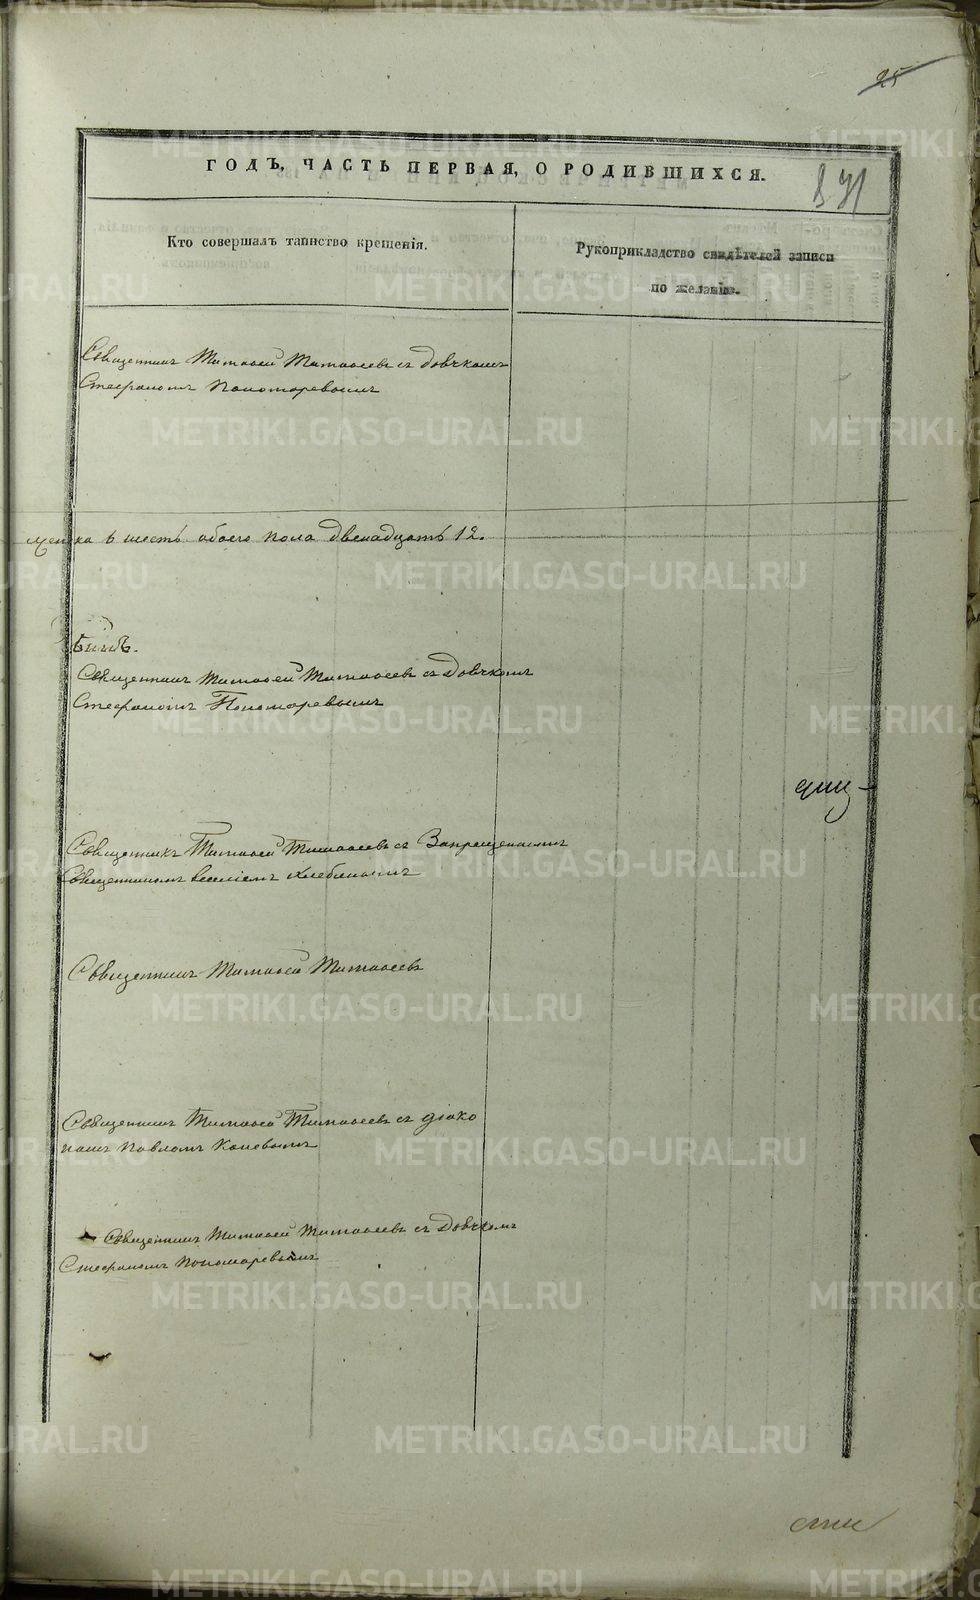 25
ГОДЪ, ЧАСТЬ ПЕРВАЯ, О РОДИВШИХСЯ.
Кто совершалъ таинство крещенія.
Рукоприкладство свидѣтелей записи
по желанію.
Священникъ Тимофей Тимофеевъ съ Дьячкомъ
Стефаномъ Пономаревымъ
женска 6 шесть обоего пола двенадцать 12.
Священникъ Тимофей Тимофеевъ съ Дьячкомъ
Стефаномъ Пономаревымъ
Священникъ Тимофей Тимофеевъ съ Запрещенымъ
Священникомъ
Священникъ Тимофей Тимофеевъ
Священникъ Тимофей Тимофеевъ съ діако
номъ Павломъ
Священникъ Тимофей Тимофеевъ съ Дьячкомъ
Стефаномъ Пономаревымъ
METRIKI.GASO-URAL.RU